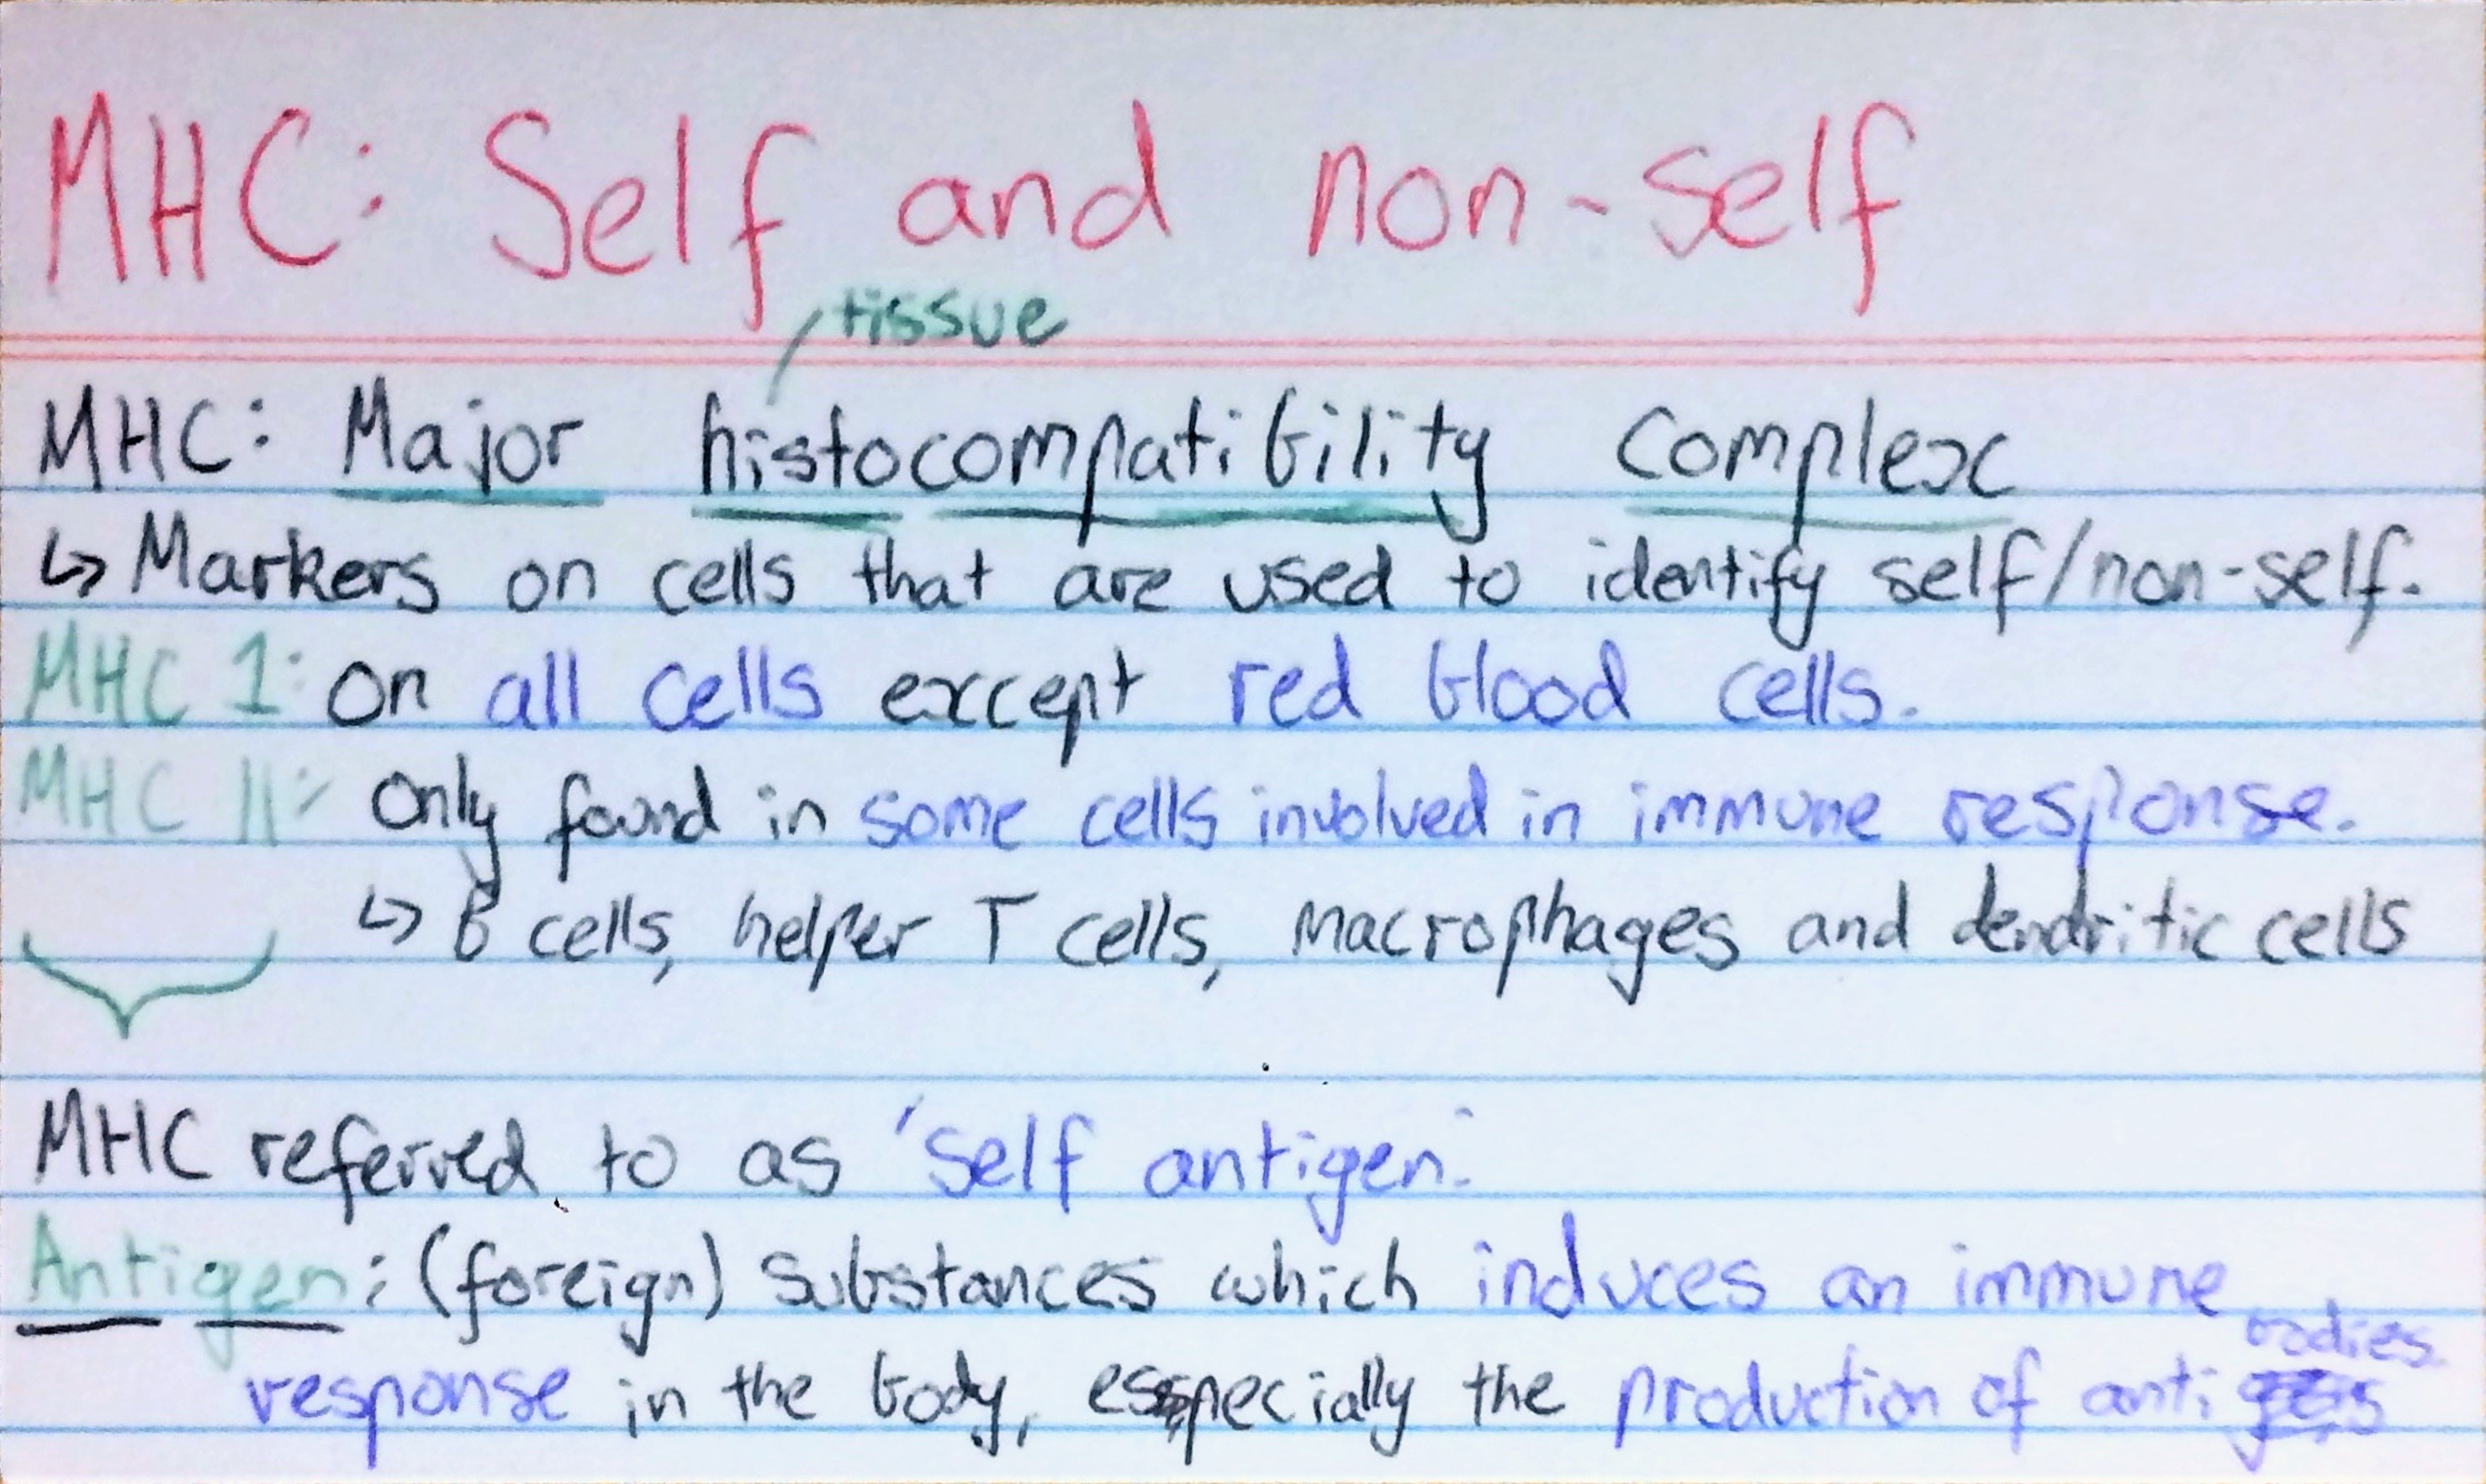 MHC: Self and non-self
tissue
MHC: Major histocompatibility complex
↳ Markers on cells that are used to identify self/non-self.
MHC I: On all cells except red blood cells.
MHC II: Only found in some cells involved in immune response.
↳ B cells, helper T cells, macrophages and dendritic cells
MHC referred to as 'self antigen.'
Antigen: (foreign) substances which induces an immune
bodies.
response in the body, especially the production of anti